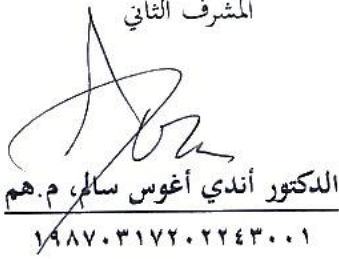 المشرف الثاني
الدكتور أندي أغوس سالم، م.هم
١٩٨٧٠٣١٧٢٠٢٢٤٣٠٠١